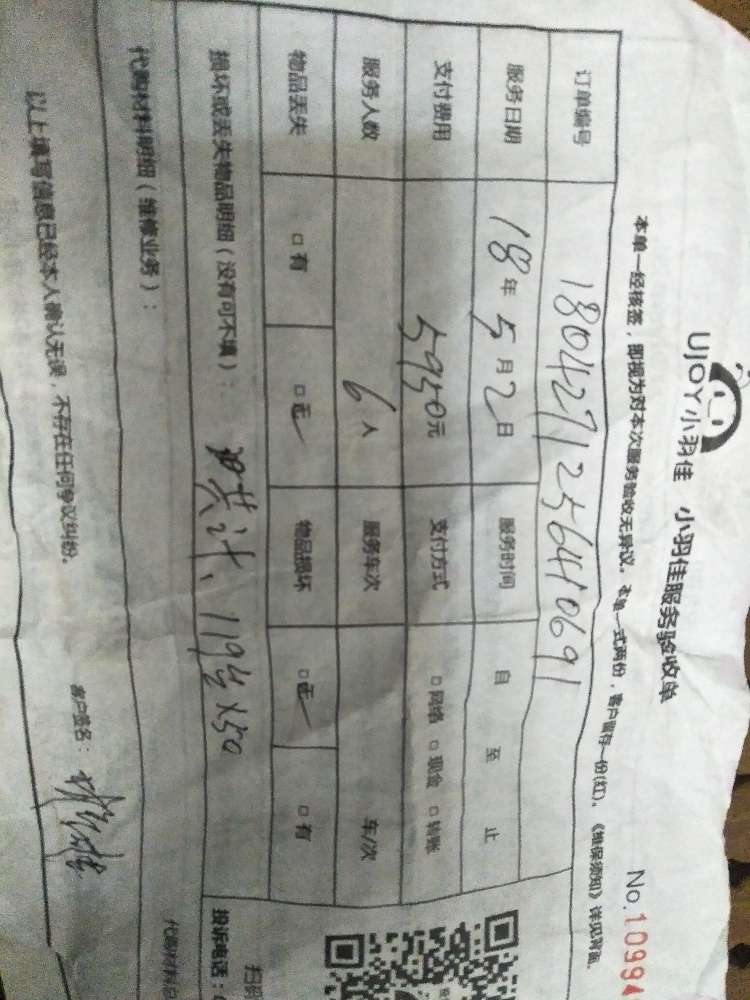 UJOY小羽佳 小羽佳服务验收单
No.10994
本单一经核签，即视为对本次服务验收无异议。本单一式两份，客户留存一份(红)。《维保须知》详见背面。
订单编号 1804271256410691
服务日期 18年5月2日 服务时间 自 至 止
支付费用 5950元 支付方式 □网络 □现金 □转账
服务人数 6人 服务车次 车/次
物品丢失 □有 □无 物品损坏 □无 □有
损坏或丢失物品明细（没有可不填）： 共计、119台×50
代购材料明细（维修业务）：
以上填写信息已经本人确认无误，不存在任何争议纠纷。
客户签名：
扫码
投诉电话：
代购材料总